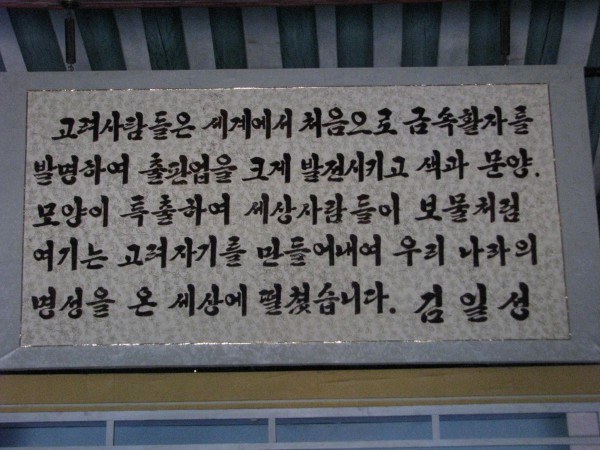 고려사람들은 세계에서 처음으로 금속활자를
발명하여 출판업을 크게 발전시키고 색과 문양.
모양이 특출하여 세상사람들이 보물처럼
여기는 고려자기를 만들어내여 우리 나라의
명성을 온 세상에 떨쳤습니다. 김일성